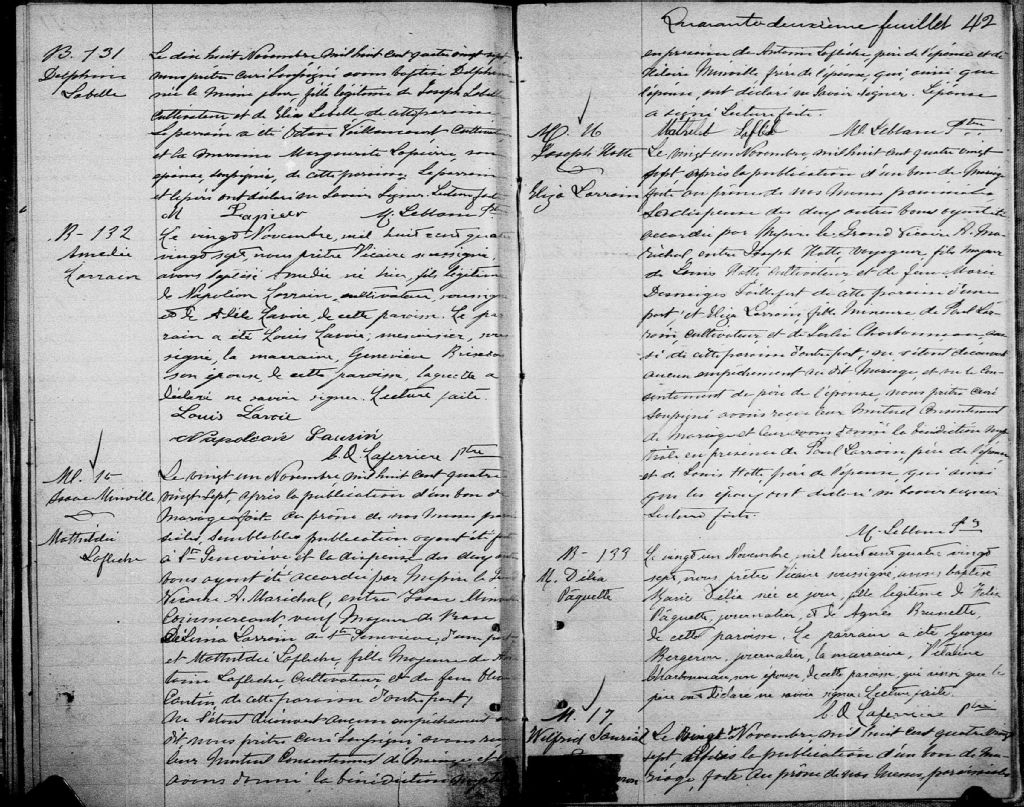 B. 131
Delphine
Labelle
Le dix huit Novembre mil huit cent quatre vingt sept
nous prêtre curé soussigné avons baptisé Delphine
née le même jour fille légitime de Joseph Labelle
cultivateur et de Eliza Lebelle de cette paroisse.
Le parrain a été Octave Villemaire Cultivateur
et la Marraine Marguerite Lapierre, son
épouse soussignée, de cette paroisse. Le parrain
et le père ont déclaré ne savoir signer. Lecture faite
M Lapierre M. Leblanc Ptre
B- 132
Amedée
Lorrain
Le vingt Novembre, mil huit cent quatre
vingt sept, nous prêtre Vicaire soussigné,
avons baptisé Amedée né hier, fils légitime
de Napoléon Lorrain, cultivateur, soussigné
et de Adèle Lavoie, de cette paroisse. Le par
rain a été Louis Lavoie, menuisier, sous
signé, la marraine, Geneviève Brisson
son épouse, de cette paroisse, laquelle a
déclaré ne savoir signer. Lecture faite
Louis Lavoie
Napoleon Laurin
C. O. Laferriere ptre
M. 15
Isaac Minville
Mathildée
Laflèche
Le vingt un Novembre mil huit cent quatre
vingt sept, après la publication d'un ban de
Mariage faite au prône de nos Messes parois
siales, semblables publication ayant été faite
à Ste Geneviève et la dispense des deux autres
bans ayant été accordée par Messire le Grand
Vicaire A. Maréchal, entre Isaac Minville
Commercant, veuf Majeur de
Délima Lorrain de Ste Geneviève, d'une part
et Mathildée Laflèche, fille Majeure de An
toine Laflèche Cultivateur et de feu
Cantin, de cette paroisse d'autre part;
ne s'étant découvert aucun empêchement au
dit, nous prêtre Curé Soussigné avons reçu
leur Mutuel Consentement de Mariage et
avons donné la bénédiction nuptiale
Quarante deuxième feuillet 42
en présence de Antoine Laflèche père de l'épouse et de
Hilaire Minville frère de l'époux, qui, ainsi que
l'époux, ont déclaré ne savoir signer. L'épouse
a signé Lecture faite.
Laflech M. Leblanc Ptre
M. 16
Joseph Hotte
Eliza Lorrain
Le vingt un Novembre, mil huit cent quatre vingt
sept après la publication d'un ban de Mariage
faite au prône de nos Messes paroissiales
La dispense des deux autres bans ayant été
accordée par Messire le Grand Vicaire A. Ma
réchal, entre Joseph Hotte, voyageur, fils majeur
de Louis Hotte cultivateur et de feue Marie
Desneiges Taillefert de cette paroisse d'une
part et Eliza Lorrain, fille Mineure de Paul Lor
rain, cultivateur et de Charbonneau, aus
si de cette paroisse d'autre part; ne s'étant découvert
aucun empêchement au dit Mariage, et vu le Con
sentement du père de l'épouse, nous prêtre curé
soussigné avons reçu leur Mutuel Consentement
de Mariage et leur avons donné la bénédiction nup
tiale en présence de Paul Lorrain père de l'épouse
et de Louis Hotte, père de l'époux, qui ainsi
que les époux ont déclaré ne savoir signer
Lecture faite.
M. Leblanc Ptre
B- 133
M. Délia
Pâquette
Le vingt, un Novembre, mil huit cent quatre vingt
sept, nous prêtre Vicaire soussigné, avons baptisé
Marie Délia née ce jour, fille légitime de Felix
Pâquette, journalier, et de Agnès Brunette,
de cette paroisse. Le parrain a été Georges
Bergeron, journalier, la marraine, Vitaline
Charbonneau, son épouse de cette paroisse, qui ainsi que le
père ont déclaré ne savoir signer. Lecture faite.
C. O Laferriere Ptre
M. 17,
Wilfrid
Le Vingt Novembre, mil huit cent quatre vingt
sept, après la publication d'un ban de Ma
riage, faite au prône de nos Messes, paroissiales